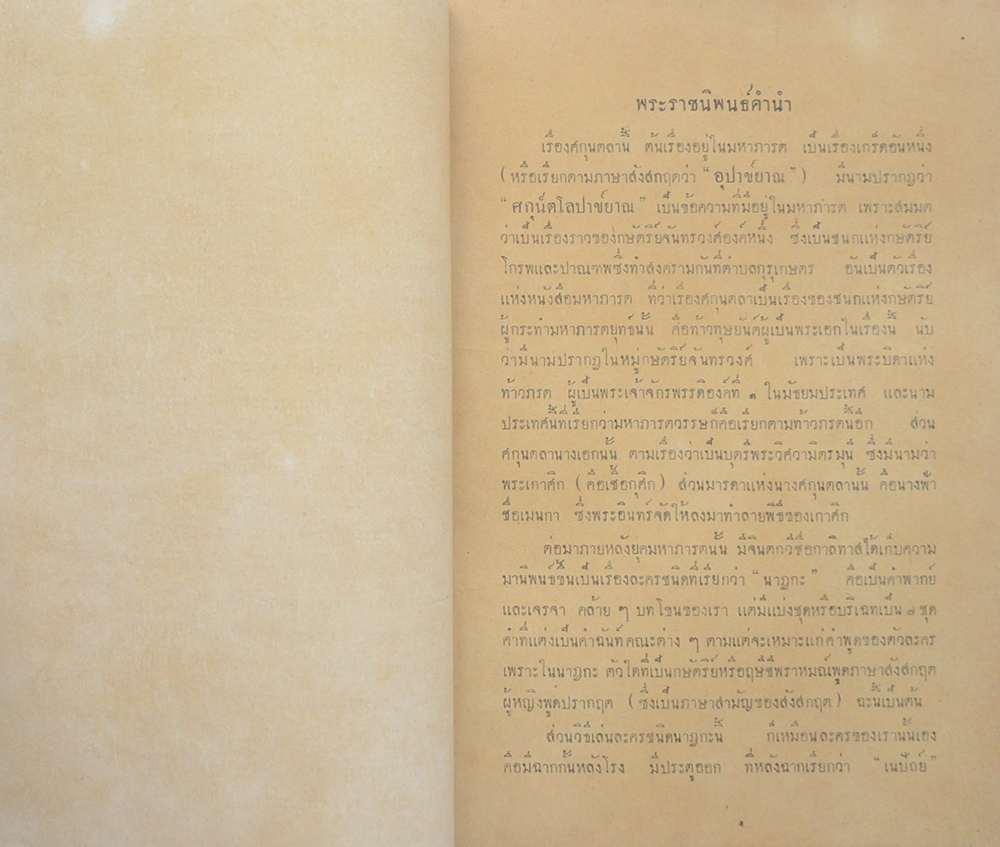 พระราชนิพนธ์คำนำ
เรื่องศกุนตลานี้ ต้นเรื่องอยู่ในมหาภารต เป็นเรื่องเกร็ดอันหนึ่ง
(หรือเรียกตามภาษาสังสกฤตว่า “อุปาข์ยาณ”) มีนามปรากฏว่า
“ศกุน์ตโลปาข์ยาณ” เป็นข้อความที่มีอยู่ในมหาภารต เพราะสมมต
ว่าเป็นเรื่องราวของกษัตริย์จันทรวงศ์องค์หนึ่ง ซึ่งเป็นชนกแห่งกษัตริย์
โกรพและปาณฑพซึ่งทำสงครามกันที่ตำบลกุรุเกษตร อันเป็นตัวเรื่อง
แห่งหนังสือมหาภารต ที่ว่าเรื่องศกุนตลาเป็นเรื่องของชนกแห่งกษัตริย์
ผู้กระทำมหาภารตยุทธ์นั้น คือท้าวทุษยันต์ผู้เป็นพระเอกในเรื่องนี้ นับ
ว่ามีนามปรากฏในหมู่กษัตริย์จันทรวงศ์ เพราะเป็นพระบิดาแห่ง
ท้าวภรต ผู้เป็นพระเจ้าจักรพรรดิองค์ที่ ๑ ในมัธยมประเทศ และนาม
ประเทศนี้ที่เรียกว่ามหาภารตวรรษก็คือเรียกตามท้าวภรตนี้อีก ส่วน
ศกุนตลานางเอกนั้น ตามเรื่องว่าเป็นบุตรีพระวิศวามิตรมุนี ซึ่งมีนามว่า
พระเกาศิก (คือเชื้อกุศิก) ส่วนมารดาแห่งนางศกุนตลานั้น คือนางฟ้า
ชื่อเมนกา ซึ่งพระอินทร์จัดให้ลงมาทำลายพิธีของเกาศิก
ต่อมาภายหลังยุคมหาภารตนั้น มีจินตกวีชื่อกาลิทาสได้เก็บความ
มานิพนธ์ขึ้นเป็นเรื่องละครชนิดที่เรียกว่า “นาฏกะ” คือเป็นคำพากย์
และเจรจา คล้าย ๆ บทโขนของเรา แต่มีแบ่งชุดหรือบริเฉทเป็น ๘ ชุด
คำที่แต่งเป็นคำฉันท์คณะต่าง ๆ ตามแต่จะเหมาะแก่คำพูดของตัวละคร
เพราะในนาฏกะ ตัวใดที่เป็นกษัตริย์หรือฤษีชีพราหมณ์พูดภาษาสังสกฤต
ผู้หญิงพูดปรากฤต (ซึ่งเป็นภาษาสามัญของสังสกฤต) ฉะนี้เป็นต้น
ส่วนวิธีเล่นละครชนิดนาฏกะนี้ ก็เหมือนละครของเรานั้นเอง
คือมีฉากกั้นหลังโรง มีประตูออก ที่หลังฉากเรียกว่า “เนปัถย์”